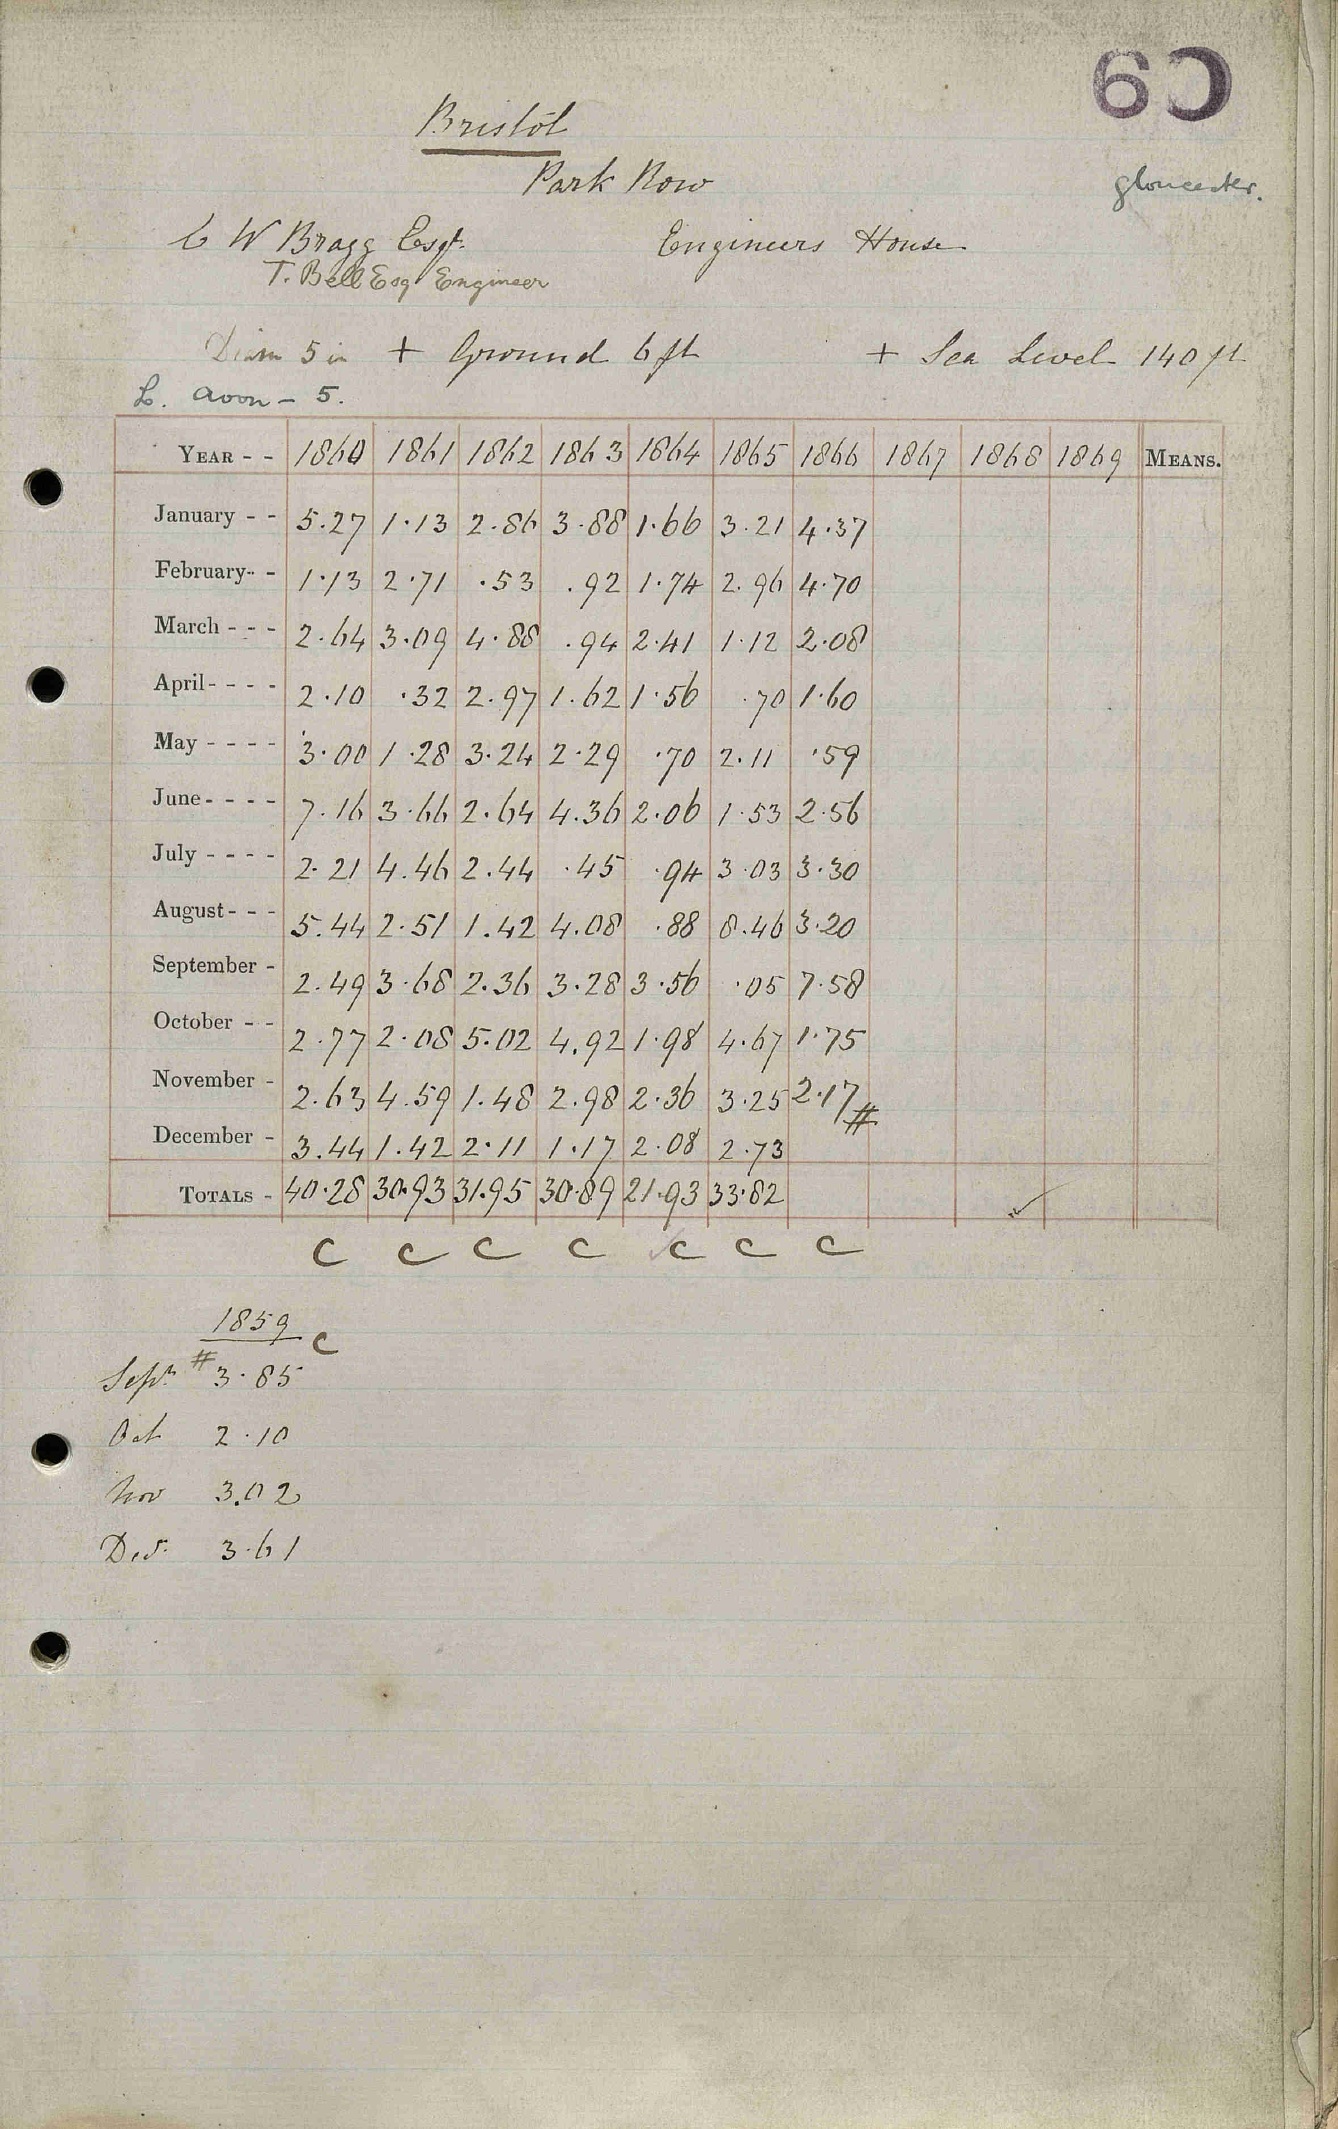 60
Bristol
Park Row
gloucester.
C W Bragg Esqr. Engineers House
T. Bell Esq Engineer
Diam 5 in + Ground 6 ft + Sea Level 140 ft
L. Avon - 5.
YEAR - - 1860 1861 1862 1863 1864 1865 1866 1867 1868 1869 MEANS.
January - - 5.27 1.13 2.86 3.88 1.66 3.21 4.37
February- - 1.13 2.71 .53 .92 1.74 2.96 4.70
March - - - 2.64 3.09 4.88 .94 2.41 1.12 2.08
April- - - - 2.10 .32 2.97 1.62 1.56 .70 1.60
May - - - - 3.00 1.28 3.24 2.29 .70 2.11 .59
June- - - - 7.16 3.66 2.64 4.36 2.06 1.53 2.56
July - - - - 2.21 4.46 2.44 .45 .94 3.03 3.30
August- - - 5.44 2.51 1.42 4.08 .88 8.46 3.20
September - 2.49 3.68 2.36 3.28 3.56 .05 7.58
October - - 2.77 2.08 5.02 4.92 1.98 4.67 1.75
November - 2.63 4.59 1.48 2.98 2.36 3.25 2.17 #
December - 3.44 1.42 2.11 1.17 2.08 2.73
TOTALS - 40.28 30.93 31.95 30.89 21.93 33.82
C C C C C C C
1859 C
Sept. # 3.85
Oct 2.10
Nov 3.02
Decr. 3.61